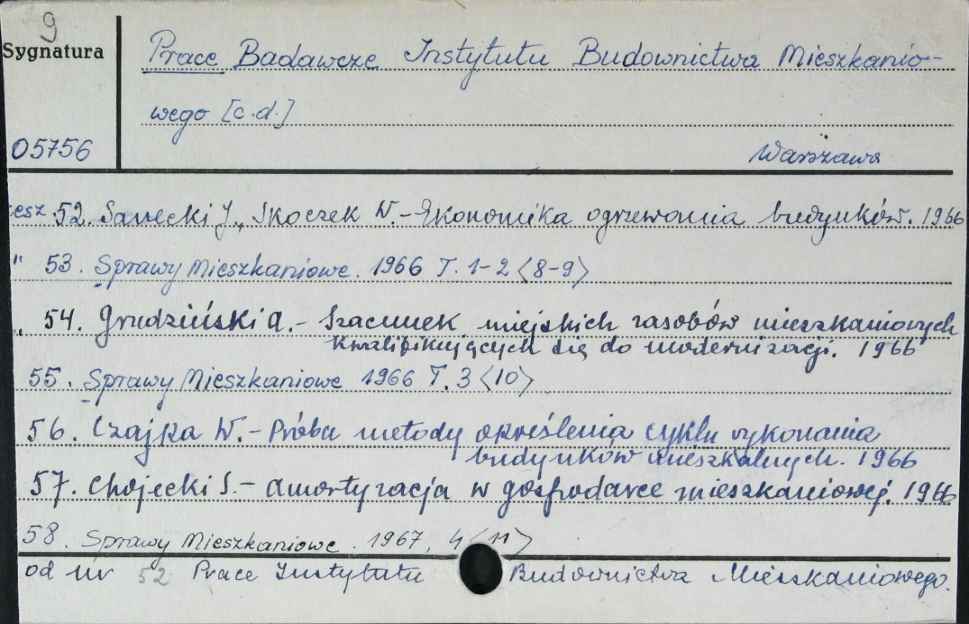 9
Sygnatura
Prace Badawcze Instytutu Budownictwa Mieszkanio-
wego [c.d.]
05756
Warszawa
zesz 52. Sanecki J., Skoczek W. - Ekonomika ogrzewania budynków. 1966
" 53. Sprawy Mieszkaniowe. 1966 T. 1-2 <8-9>
" 54. Grudziński A. - Szacunek miejskich zasobów mieszkaniowych
kwalifikujących się do modernizacji. 1966
55. Sprawy Mieszkaniowe 1966 T. 3 <10>
56. Czajka W. - Próba metody określenia cyklu wykonania
budynków mieszkalnych. 1966
57. Chojecki S. - Amortyzacja w gospodarce mieszkaniowej. 1966
58. Sprawy Mieszkaniowe. 1967. 4 <11>
od nr 52 Prace Instytutu Budownictwa Mieszkaniowego.